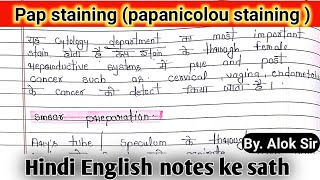 Pap staining (papanicolou staining )
यह cytology department का most important
stain होता है इस stain के through female
reproductive systems में pre and post
cancer such as cervical, vagina, endometrial
के cancer को detect किया जाता है।
smear preparation:
Ayre's tube / speculum के through
By. Alok Sir
Hindi English notes ke sath